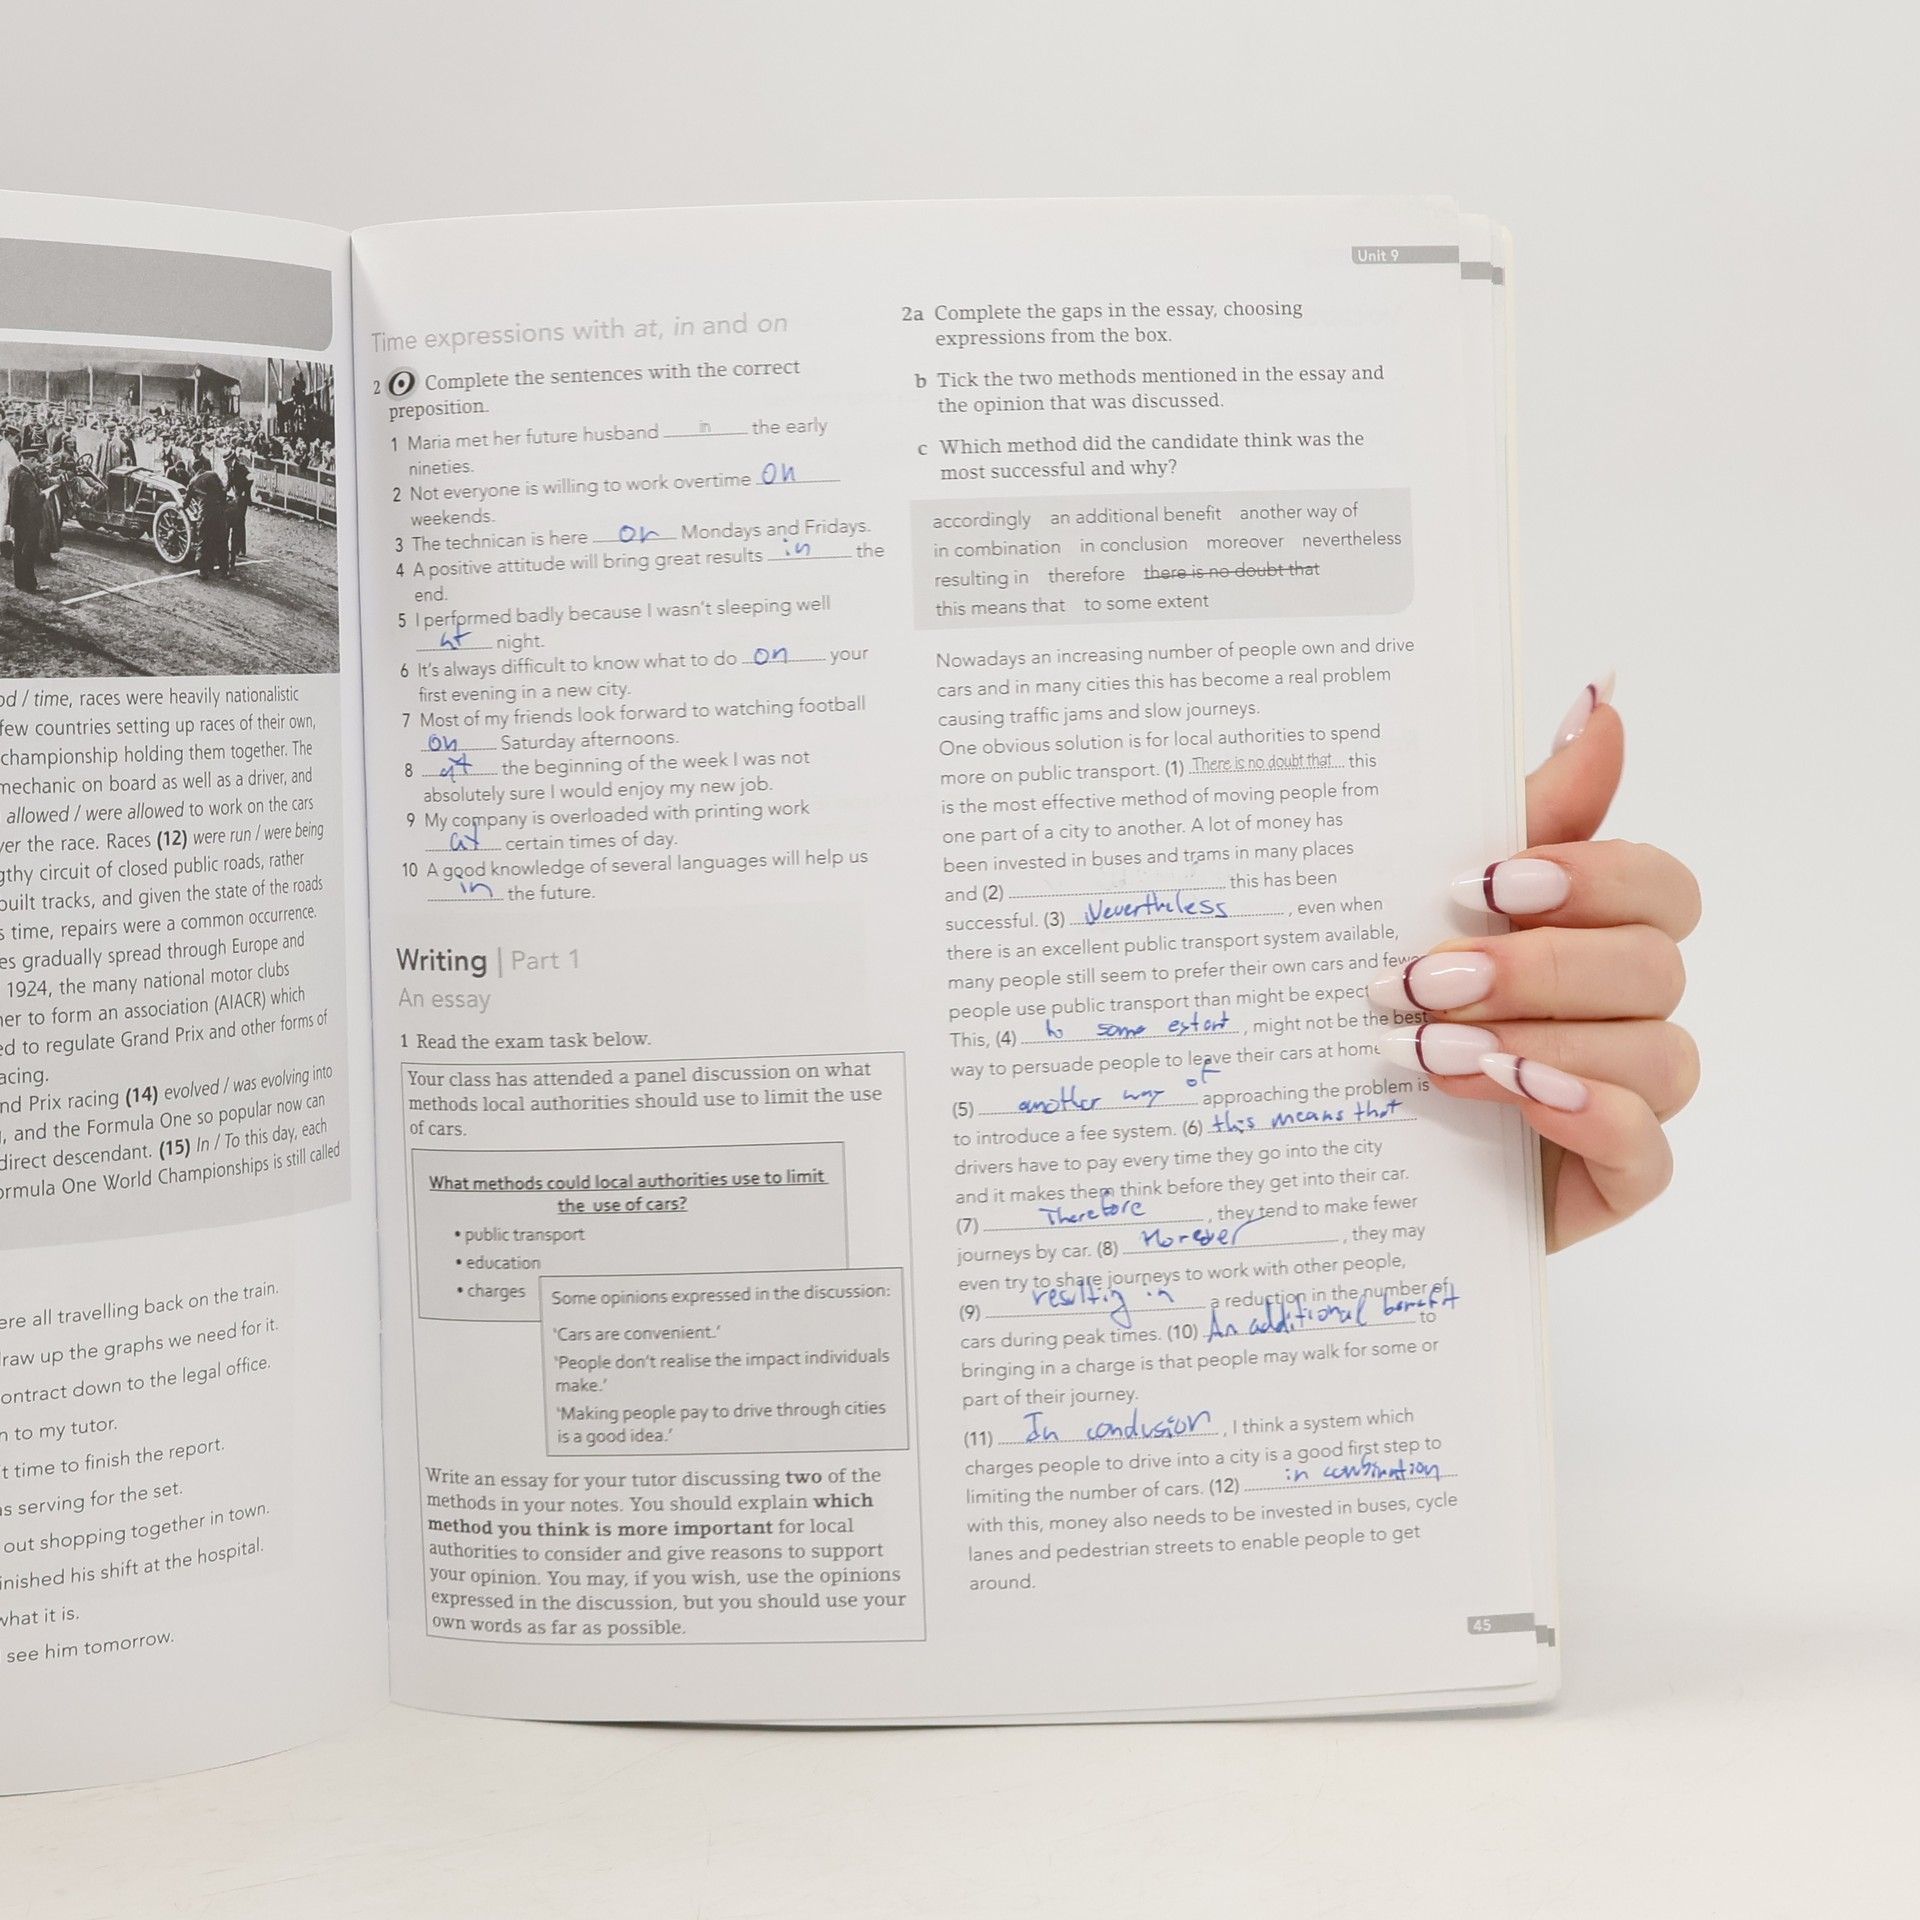 od / time, races were heavily nationalistic
few countries setting up races of their own,
championship holding them together. The
mechanic on board as well as a driver, and
allowed / were allowed to work on the cars
ver the race. Races (12) were run / were being
gthy circuit of closed public roads, rather
built tracks, and given the state of the roads
s time, repairs were a common occurrence.
es gradually spread through Europe and
1924, the many national motor clubs
her to form an association (AIACR) which
ed to regulate Grand Prix and other forms of
acing.
nd Prix racing (14) evolved / was evolving into
, and the Formula One so popular now can
direct descendant. (15) In / To this day, each
ormula One World Championships is still called
ere all travelling back on the train.
draw up the graphs we need for it.
ontract down to the legal office.
n to my tutor.
t time to finish the report.
as serving for the set.
out shopping together in town.
inished his shift at the hospital.
what it is.
see him tomorrow.
Unit 9
Time expressions with at, in and on
2 Complete the sentences with the correct
preposition.
1 Maria met her future husband in the early
nineties.
2 Not everyone is willing to work overtime on
weekends.
3 The technican is here on Mondays and Fridays.
4 A positive attitude will bring great results in the
end.
5 I performed badly because I wasn't sleeping well
at night.
6 It's always difficult to know what to do on your
first evening in a new city.
7 Most of my friends look forward to watching football
on Saturday afternoons.
8 at the beginning of the week I was not
absolutely sure I would enjoy my new job.
9 My company is overloaded with printing work
at certain times of day.
10 A good knowledge of several languages will help us
in the future.
Writing | Part 1
An essay
1 Read the exam task below.
Your class has attended a panel discussion on what
methods local authorities should use to limit the use
of cars.
What methods could local authorities use to limit
the use of cars?
• public transport
• education
• charges
Some opinions expressed in the discussion:
'Cars are convenient.'
'People don't realise the impact individuals
make.'
'Making people pay to drive through cities
is a good idea.'
Write an essay for your tutor discussing two of the
methods in your notes. You should explain which
method you think is more important for local
authorities to consider and give reasons to support
your opinion. You may, if you wish, use the opinions
expressed in the discussion, but you should use your
own words as far as possible.
2a Complete the gaps in the essay, choosing
expressions from the box.
b Tick the two methods mentioned in the essay and
the opinion that was discussed.
c Which method did the candidate think was the
most successful and why?
accordingly an additional benefit another way of
in combination in conclusion moreover nevertheless
resulting in therefore there is no doubt that
this means that to some extent
Nowadays an increasing number of people own and drive
cars and in many cities this has become a real problem
causing traffic jams and slow journeys.
One obvious solution is for local authorities to spend
more on public transport. (1) There is no doubt that this
is the most effective method of moving people from
one part of a city to another. A lot of money has
been invested in buses and trams in many places
and (2) this has been
successful. (3) Nevertheless, even when
there is an excellent public transport system available,
many people still seem to prefer their own cars and fewe
people use public transport than might be expect
This, (4) to some extent, might not be the best
way to persuade people to leave their cars at home
(5) another way of approaching the problem is
to introduce a fee system. (6) this means that
drivers have to pay every time they go into the city
and it makes them think before they get into their car.
(7) Therefore, they tend to make fewer
journeys by car. (8) Morever, they may
even try to share journeys to work with other people,
(9) resulting in a reduction in the number of
cars during peak times. (10) An additional benefit to
bringing in a charge is that people may walk for some or
part of their journey.
(11) In conclusion, I think a system which
charges people to drive into a city is a good first step to
limiting the number of cars. (12) in combination
with this, money also needs to be invested in buses, cycle
lanes and pedestrian streets to enable people to get
around.
45